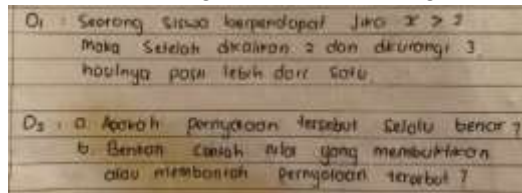 D1 : Seorang siswa berpendapat Jika x > 2
Maka Setelah dikalikan 2 dan dikurangi 3
hasilnya pasti lebih dari satu.
D2 : a. Apakah pernyataan tersebut Selalu benar ?
b. Berikan Contoh nilai yang membuktikan
atau membantah Pernyataan tersebut ?